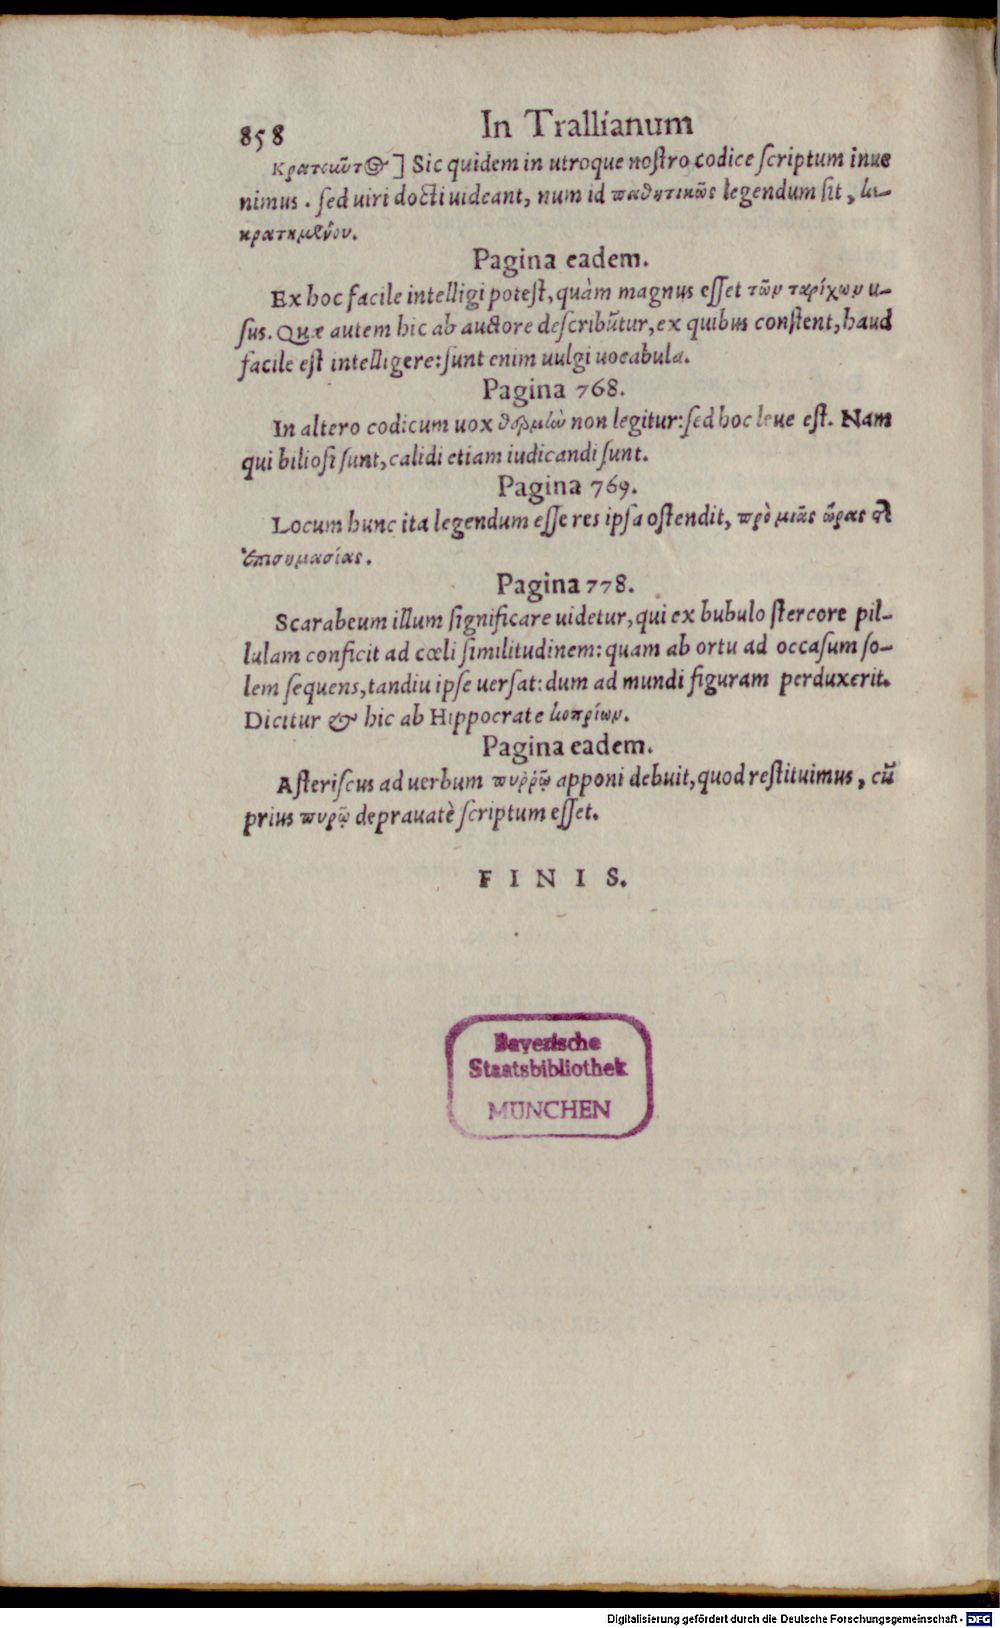 858 In Trallianum
Κρατοῦντος] Sic quidem in utroque nostro codice scriptum inue
nimus. sed uiri docti uideant, num id παθητικῶς legendum sit, κε-
κρατημένου.
Pagina eadem.
Ex hoc facile intelligi potest, quàm magnus esset τῶν ταρίχων u-
sus. Quæ autem hic ab auctore describūtur, ex quibus constent, haud
facile est intelligere: sunt enim uulgi uocabula.
Pagina 768.
In altero codicum uox θερμῶν non legitur: sed hoc leue est. Nam
qui biliosi sunt, calidi etiam iudicandi sunt.
Pagina 769.
Locum hunc ita legendum esse res ipsa ostendit, πρὸ μιᾶς ὥρας τῆς
ἐπισημασίας.
Pagina 778.
Scarabeum illum significare uidetur, qui ex bubulo stercore pil-
lulam conficit ad cœli similitudinem: quam ab ortu ad occasum so-
lem sequens, tandiu ipse uersat: dum ad mundi figuram perduxerit.
Dicitur & hic ab Hippocrate κοπρίων.
Pagina eadem.
Asteriscus ad uerbum πυῤῥῷ apponi debuit, quod restituimus, cū
prius πυρῷ deprauatè scriptum esset.
FINIS.
Bayerische
Staatsbibliothek
MÜNCHEN
Digitalisierung gefördert durch die Deutsche Forschungsgemeinschaft - DFG